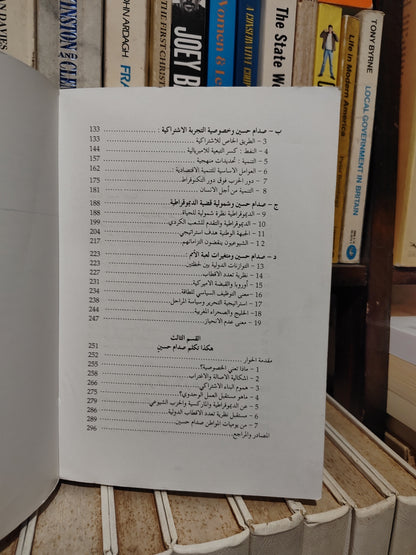 N DAVIES
NSTON & CLE
OHN VARDAGH
FRA
THE FIRST CHRIST
JOEY
Women &
A CONSERVATIVE
The State
Life in Modern America
TONY BYRNE
LOCAL GOVERNMENT IN BRITAIN
ب – صدام حسين وخصوصية التجربة الاشتراكية : 133
3 – الطريق الخاص للاشتراكية 133
4 – النفط : كسر التبعية للامبريالية 144
5 – التنمية : تحديدات منهجية 157
6 – العوامل الاساسية للتنمية الاقتصادية 162
7 – دور الحزب فوق دور التكنوقراط 177
8 – التنمية من أجل الانسان 181
ج – صدام حسين وشمولية قضية الديموقراطية 188
9 – الديموقراطية نظرة شمولية للحياة 188
10 – الديموقراطية والتقدم للشعب الكردي 197
11 – الجبهة الوطنية هدف استراتيجي 204
12 – الشيوعيون ينقضون التزاماتهم 217
د – صدام حسين ومتغيرات لعبة الأمم 223
13 – التوازنات الدولية بين لحظتين 223
14 – نظرية تعدد الاقطاب
15 – أوروبا والقبضة الاميركية
16 – معنى التوظيف السياسي للطاقة
17 – استراتيجية التحرير وسياسة المراحل 238
18 – الخليج والصحراء المغربية
19 – معنى عدم الانحياز 247
القسم الثالث
هكذا تكلم صدام حسين 251
مقدمة الحوار 252
1 – ماذا تعني الخصوصية؟ 255
2 – اشكالية الاصالة والاغتراب 258
3 – هموم البناء الاشتراكي
4 – ماهو مستقبل العمل الوحدوي؟
5 – عن الديموقراطية والماركسية والحزب الشيوعي
6 – مستقبل نظرية تعدد الاقطاب الدولية
7 – من يوميات المواطن صدام حسين 289
المصادر والمراجع 296